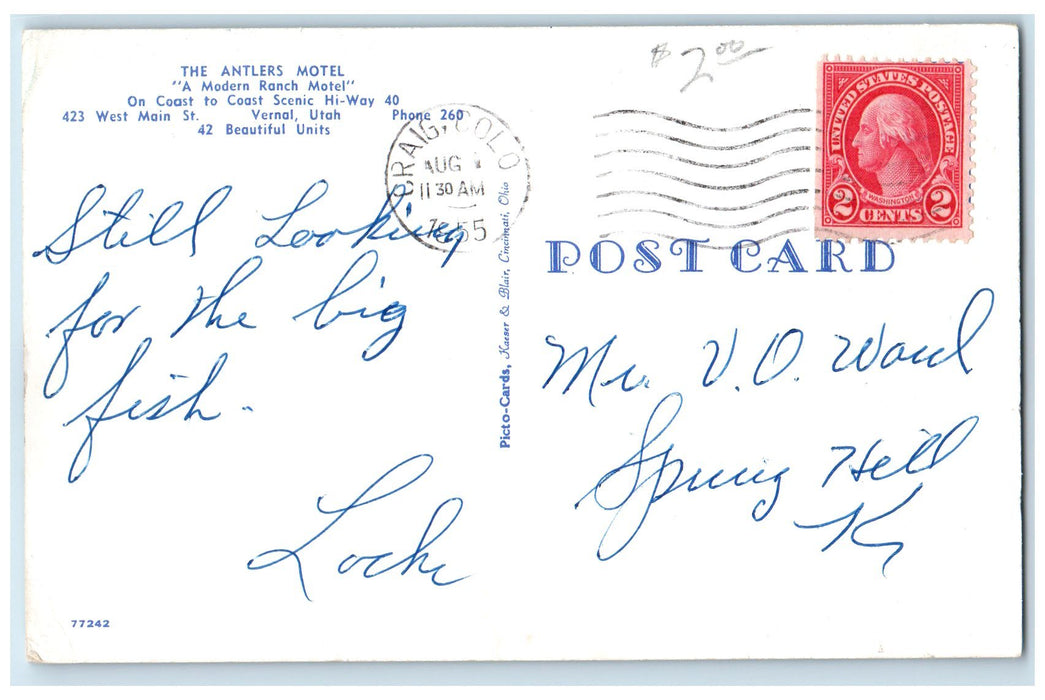 THE ANTLERS MOTEL
"A Modern Ranch Motel"
On Coast to Coast Scenic Hi-Way 40
423 West Main St. Vernal, Utah Phone 260
42 Beautiful Units
CRAIG, COLO
AUG
11 30 AM
1955
$2.00
UNITED STATES POSTAGE
WASHINGTON
2 CENTS 2
POST CARD
Still Looking
for the big
fish.
Locke
Picto-Cards, Kaeser & Blair, Cincinnati, Ohio
Mr. V. O. Ward
Spring Hill
K
77242